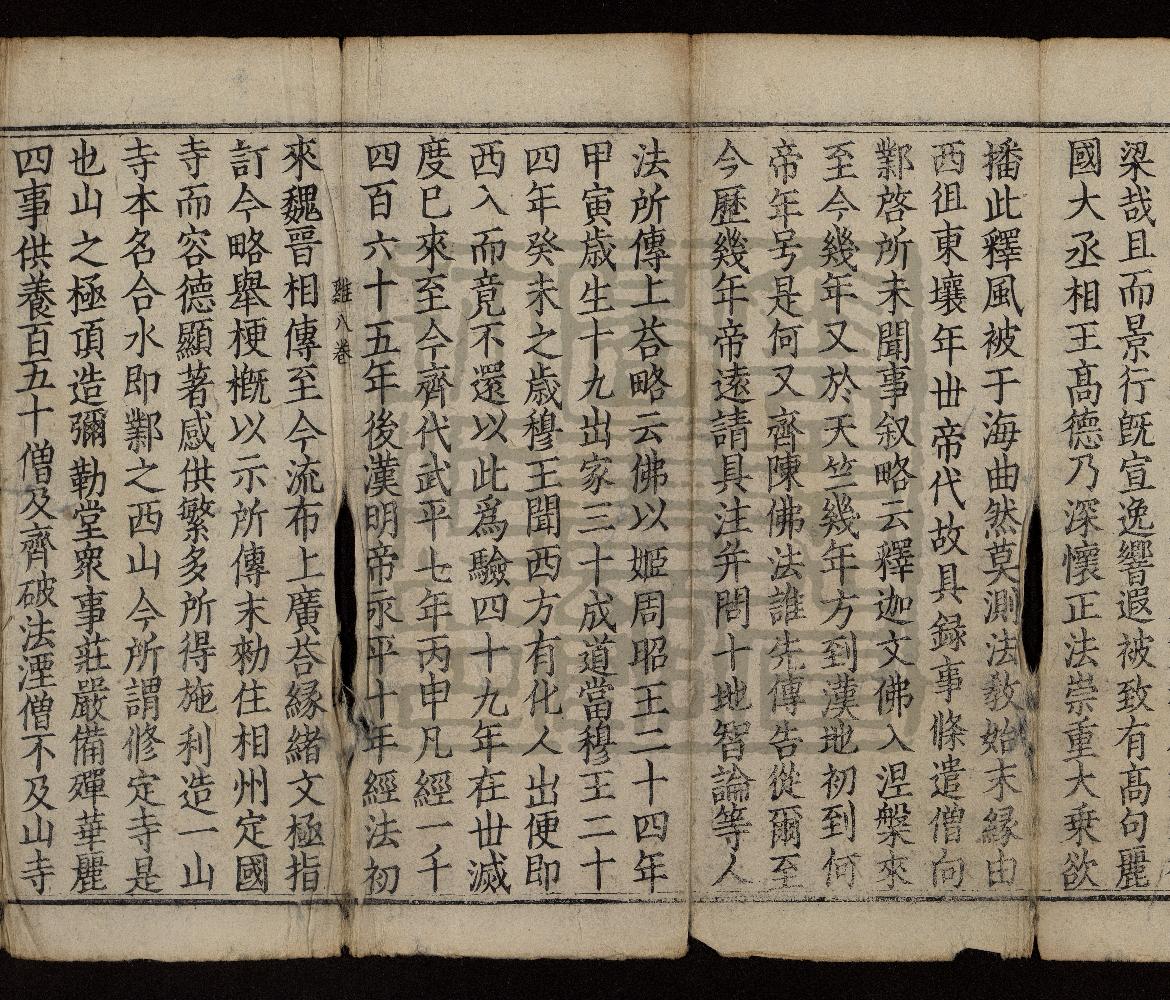 梁哉且而景行旣宣逸響遐被致有髙句麗
國大丞相王髙德乃深懷正法崇重大乗欲
播此釋風被于海曲然莫測法教始末縁由
西徂東壤年丗帝代故具録事條遣僧向
鄴啓所未聞事叙略云釋迦文佛入涅槃來
至今幾年又於天竺幾年方到漢地初到何
帝年号是何又齊陳佛法誰先傳告從爾至
今歷幾年帝遠請具注并問十地智論等人
法所傳上荅略云佛以姬周昭王二十四年
甲寅歳生十九出家三十成道當穆王二十
四年癸未之歳穆王聞西方有化人出便即
西入而竟不還以此爲驗四十九年在丗滅
度已來至今齊代武平七年丙申凡經一千
四百六十五年後漢明帝永平十年經法初
雞八卷
來魏晉相傳至今流布上廣荅縁緒文極指
訂今略舉梗槪以示所傳末勑住相州定國
寺而容德顯著感供繁多所得施利造一山
寺本名合水即鄴之西山今所謂修定寺是
也山之極頂造彌勒堂衆事莊嚴備殫華麗
四事供養百五十僧及齊破法湮僧不及山寺